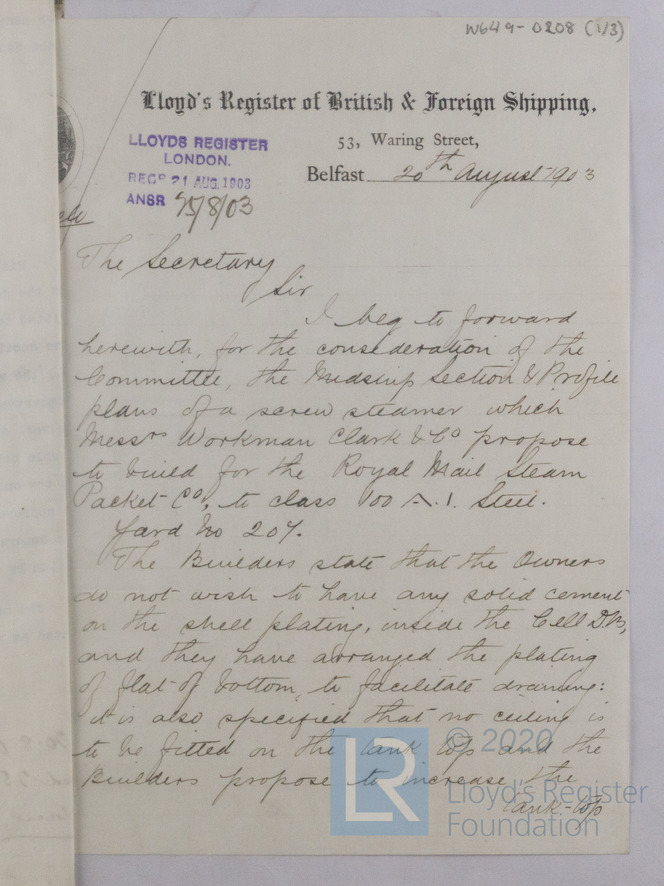 W649-0208 (1/3)
Lloyd's Register of British & Foreign Shipping.
53, Waring Street,
Belfast 20th August 1903
LLOYDS REGISTER
LONDON.
REC^D 21 AUG. 1903
ANSR 25/8/03
The Secretary
Sir
I beg to forward
herewith, for the consideration of the
Committee, the Midship Section & Profile
plans of a screw steamer which
Messrs Workman Clark & Co propose
to build for the Royal Mail Steam
Packet Co, to class 100 A.1. Steel.
Yard No 207.
The Builders state that the Owners
do not wish to have any solid cement
on the shell plating, inside the Cell D.B,
and they have arranged the plating
of flat of bottom, to facilitate draining:
it is also specified that no ceiling is
to be fitted on the tank top and the
Builders propose to increase the
tank-top
© 2020
LR
Lloyd's Register
Foundation